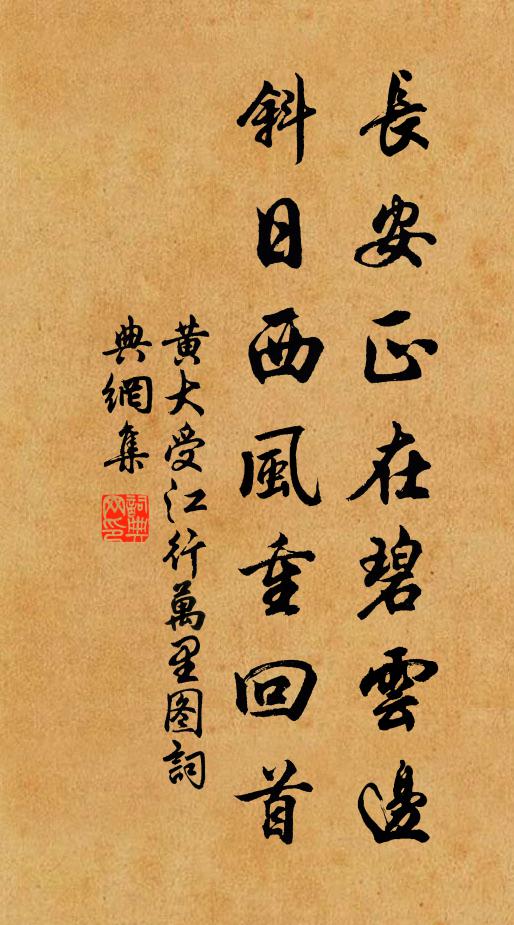 長安正在碧雲邊
斜日西風重回首
黄大受江行萬里图詞
典網集
詞典
网印